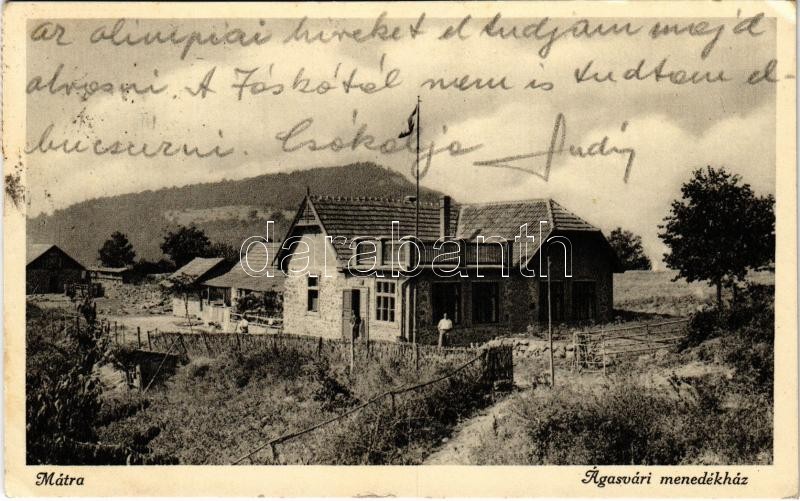 az olimpiai híreket el tudjam majd
olvasni. A Jáskótól nem is tudtam el-
bucsúzni. Csókolja Judy
darabanth
Mátra
Ágasvári menedékház